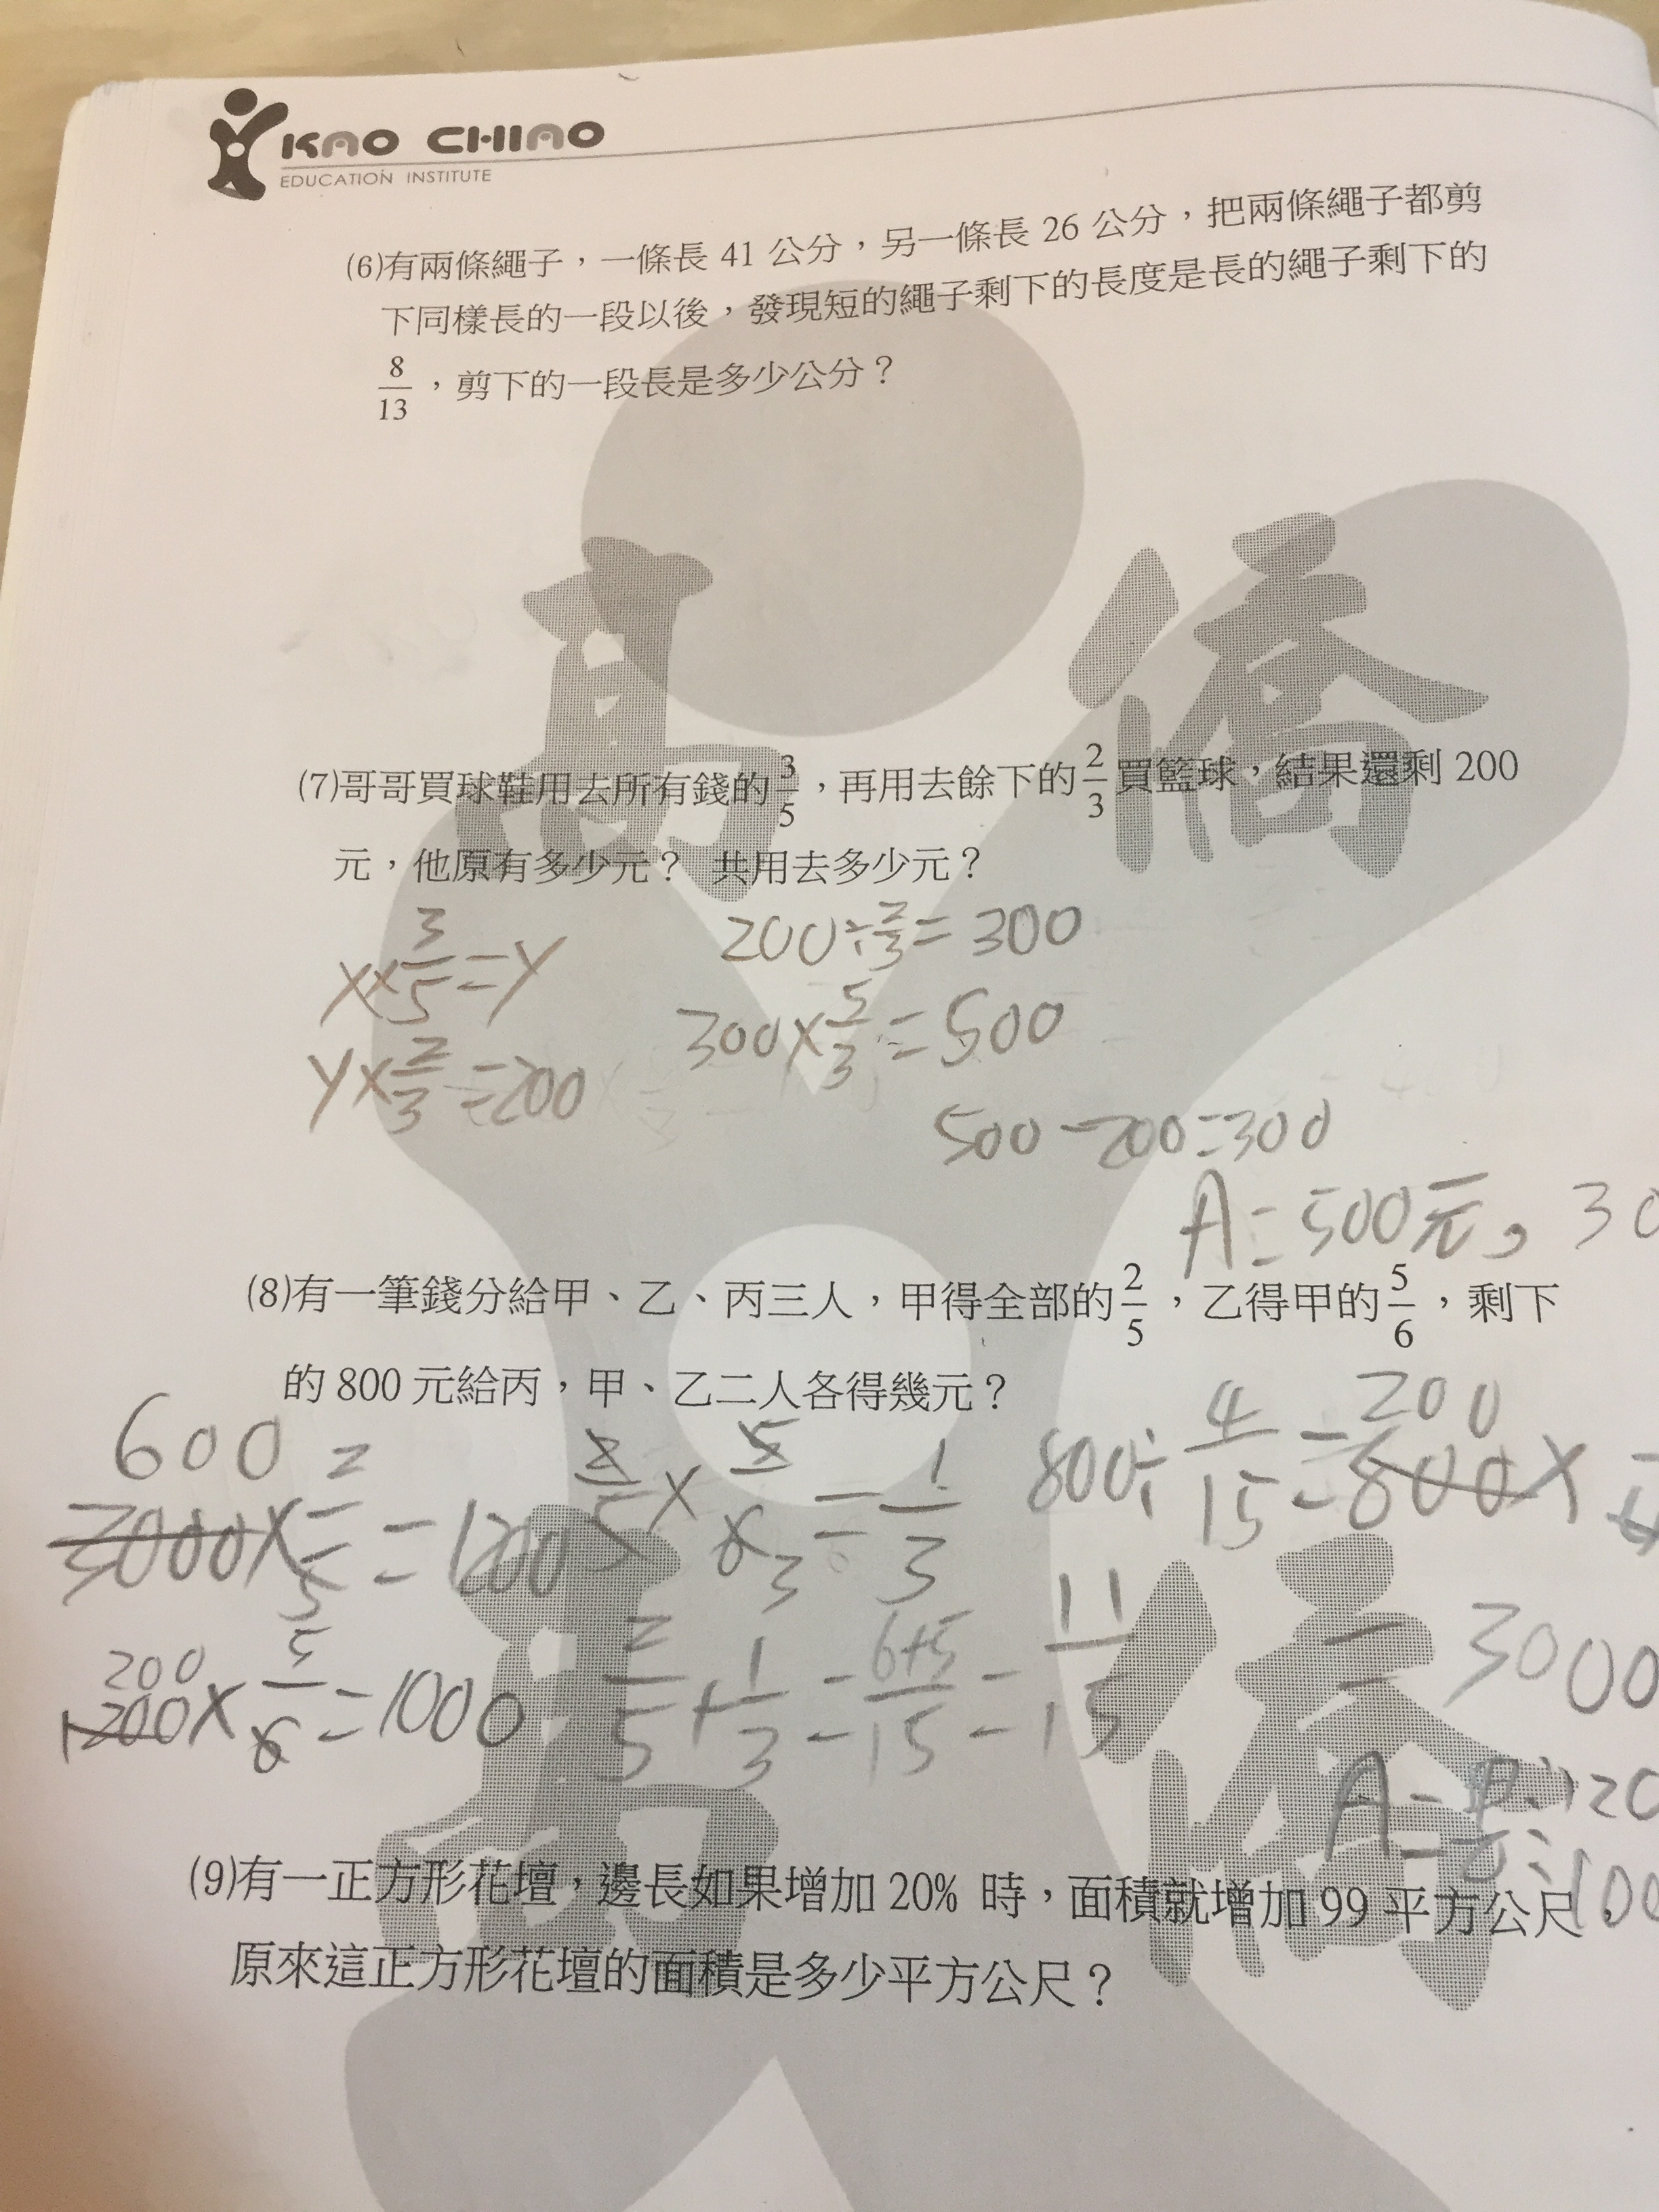 KAO CHIAO
EDUCATION INSTITUTE
(6)有兩條繩子，一條長 41 公分，另一條長 26 公分，把兩條繩子都剪
下同樣長的一段以後，發現短的繩子剩下的長度是長的繩子剩下的
8/13，剪下的一段長是多少公分？
高僑
(7)哥哥買球鞋用去所有錢的3/5，再用去餘下的2/3買籃球，結果還剩 200
元，他原有多少元？ 共用去多少元？
x×3/5=y
200÷2/3=300
y×2/3=200
300×5/3=500
500-200=300
A=500元，30
(8)有一筆錢分給甲、乙、丙三人，甲得全部的2/5，乙得甲的5/6，剩下
的 800 元給丙，甲、乙二人各得幾元？
600
3000×2/5=1200
2/5×5/6=1/3
3
200
800÷4/15=800×
200
1200×5/6=1000
2/5+1/3=6+5/15=11/15
=3000
A=甲:120
乙:100
高僑
(9)有一正方形花壇，邊長如果增加 20% 時，面積就增加 99 平方公尺，
原來這正方形花壇的面積是多少平方公尺？